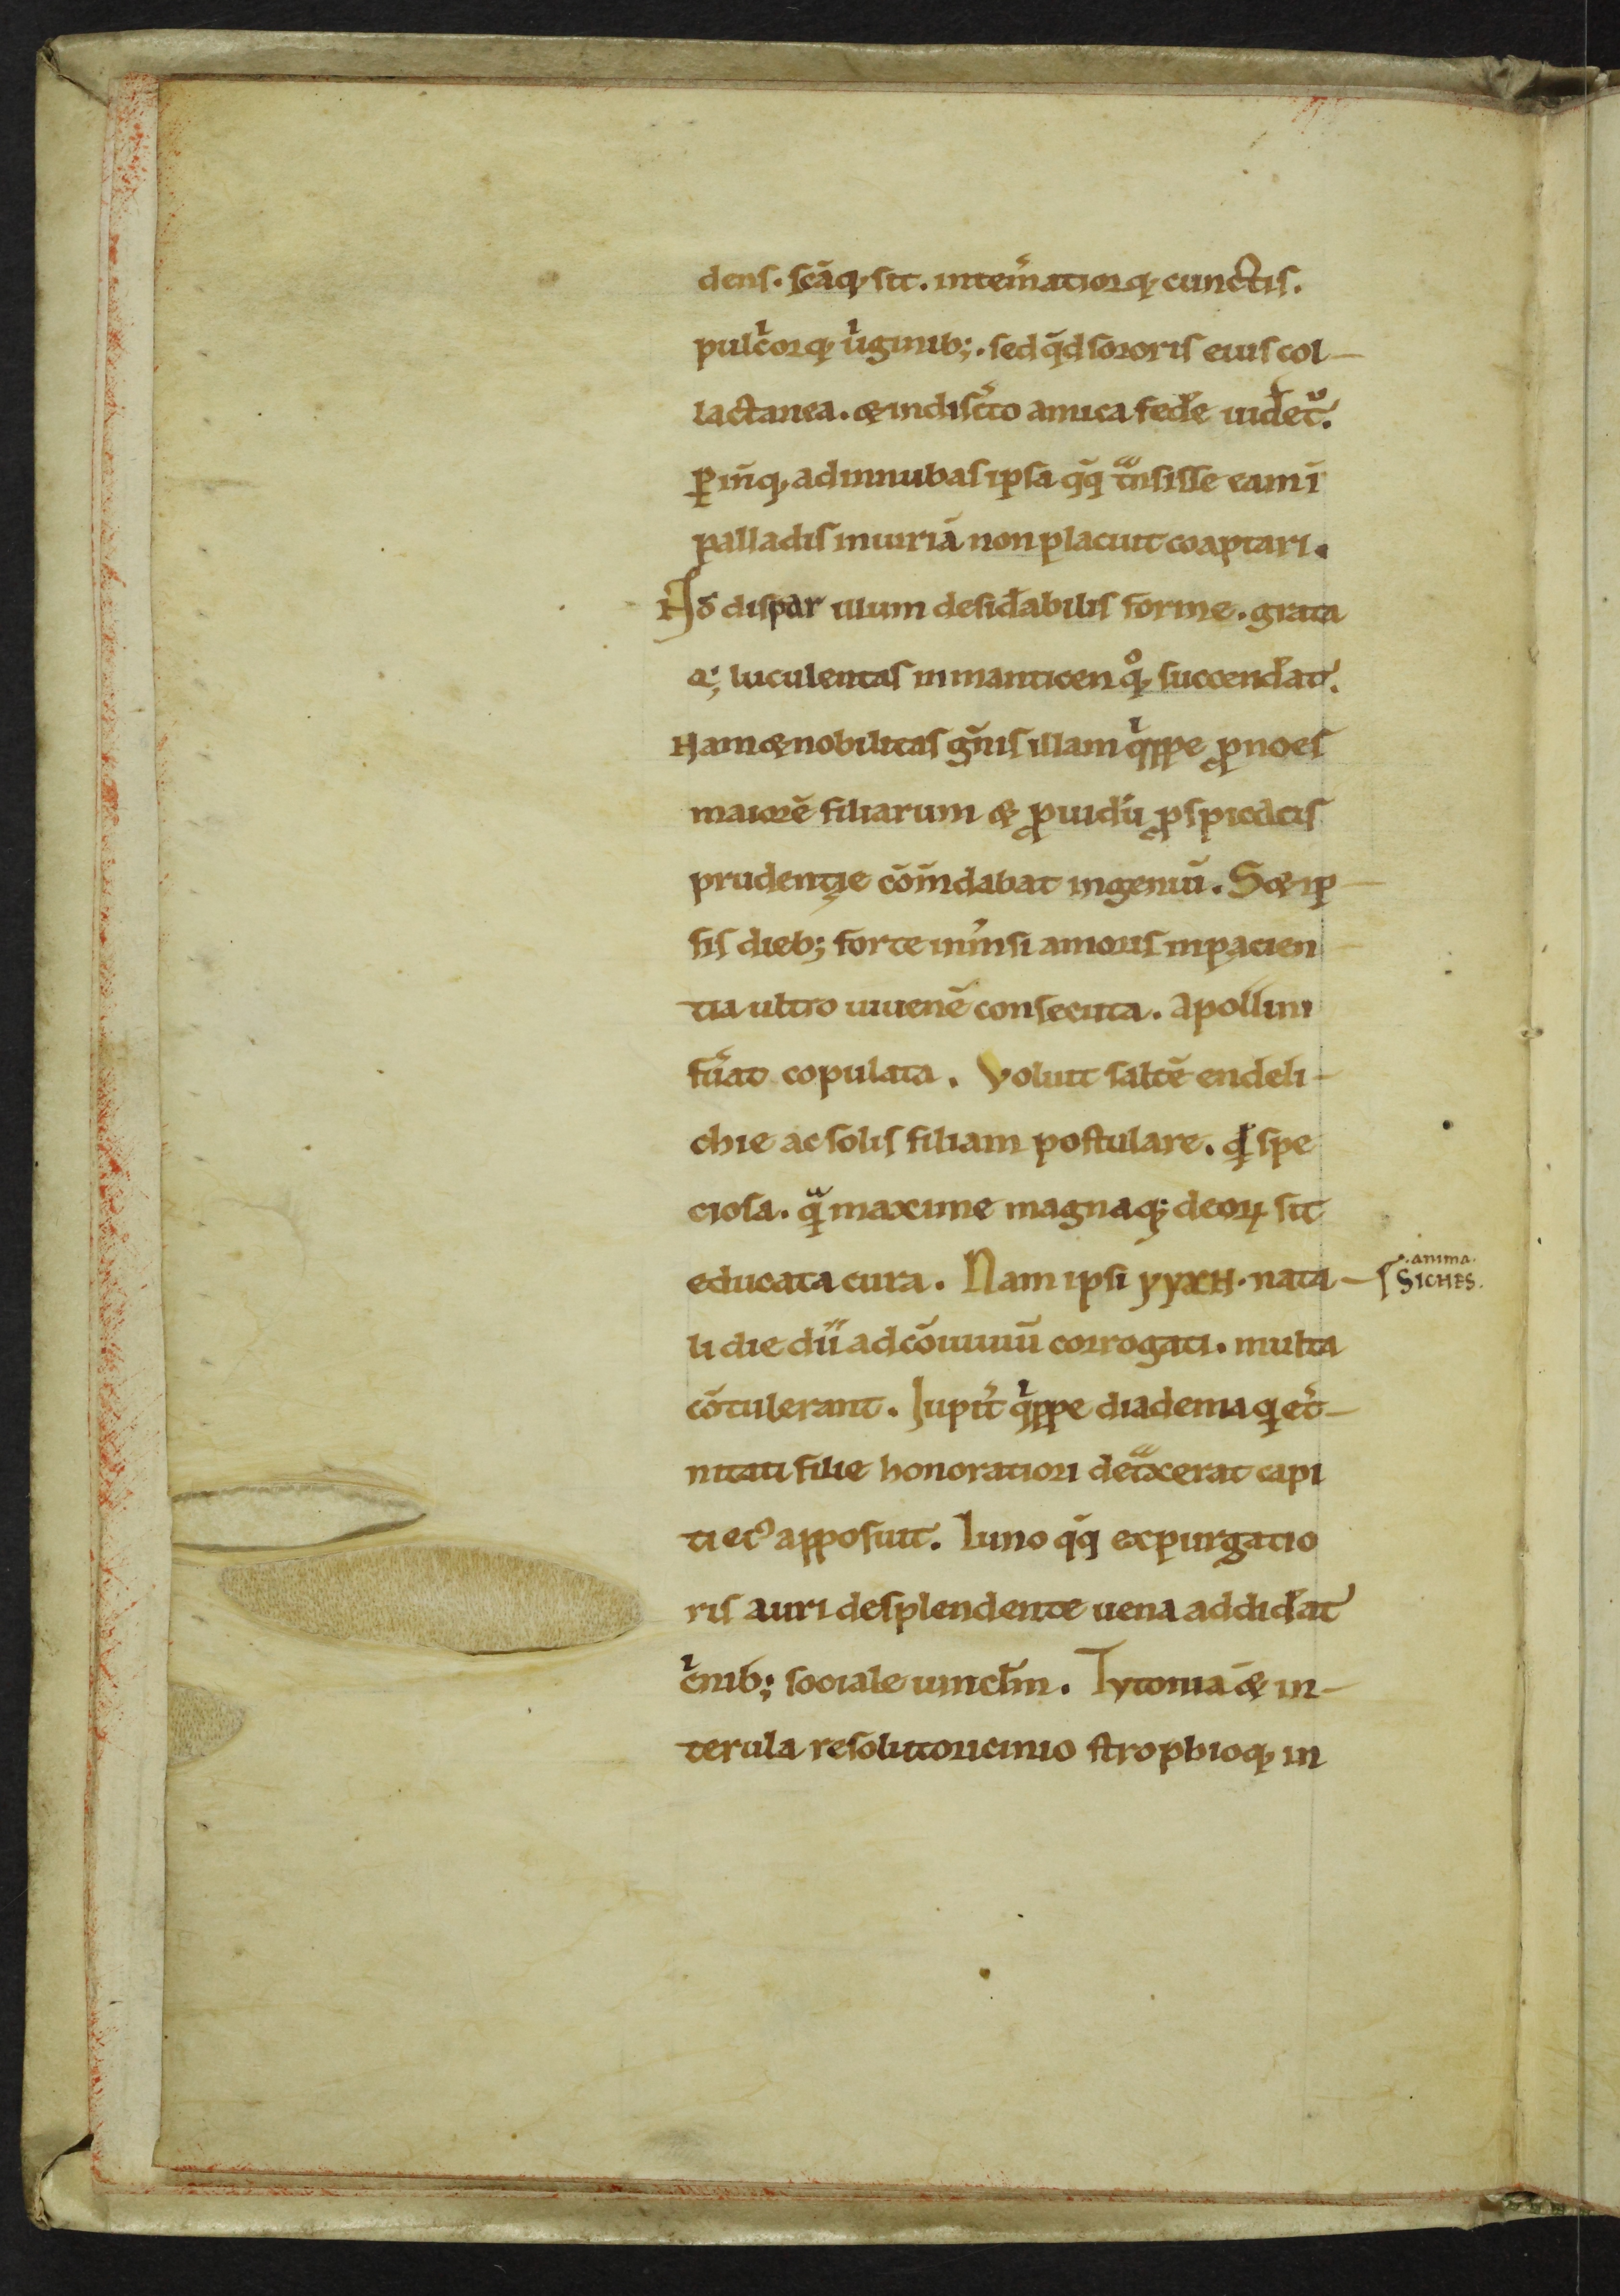 dens. scāq; sit. intem̄atiorq; cunctis.
pulcͥorq; uͥginib;. sed qd̄ sororis eius col-
lactanea. & indiscͤto amica fed̄e uidet᷑.
ꝑinq; ad innubas ipsa qq̄ tᷓnsisse eam ī
palladis iniuriā non placuit coaptari.
Nō dispar illum desid̄abilis forme. grata
q; luculentas in manticen qͦq; succend̄at.
Nam & nobilitas gn̄is illam qͥppe ꝓnoes
maiorē filiarum & ꝓuidū ꝓspicacis
prudentię cōm̄dabat ingeniū. S& ip-
sis dieb; forte inm̄si amoris inpacien
tia ultro iuuenē consecuta. apollini
fūat copulata. Voluit saltē endeli-
chie ac solis filiam postulare. qđ spe
ciosa. qᷓ maxime magnaq; deoꝝ sit
educata cura. Nam ipsi yyxH. nata-
li die dii ad cōuiuiū corrogati. multa
cōtulerant. Iupit̄ qͥppe diadema q et̄-
nitati filie honoratiori detᷓxerat capi
ti eiꝰ apposuit. Iuno qq̄ expurgatio
ris auri desplendente uena addid̄at
cͥnib; sociale uinclm̄. Tytoniā & in-
terula resolutoricinio strophioq; in
.anima.
SICHES.